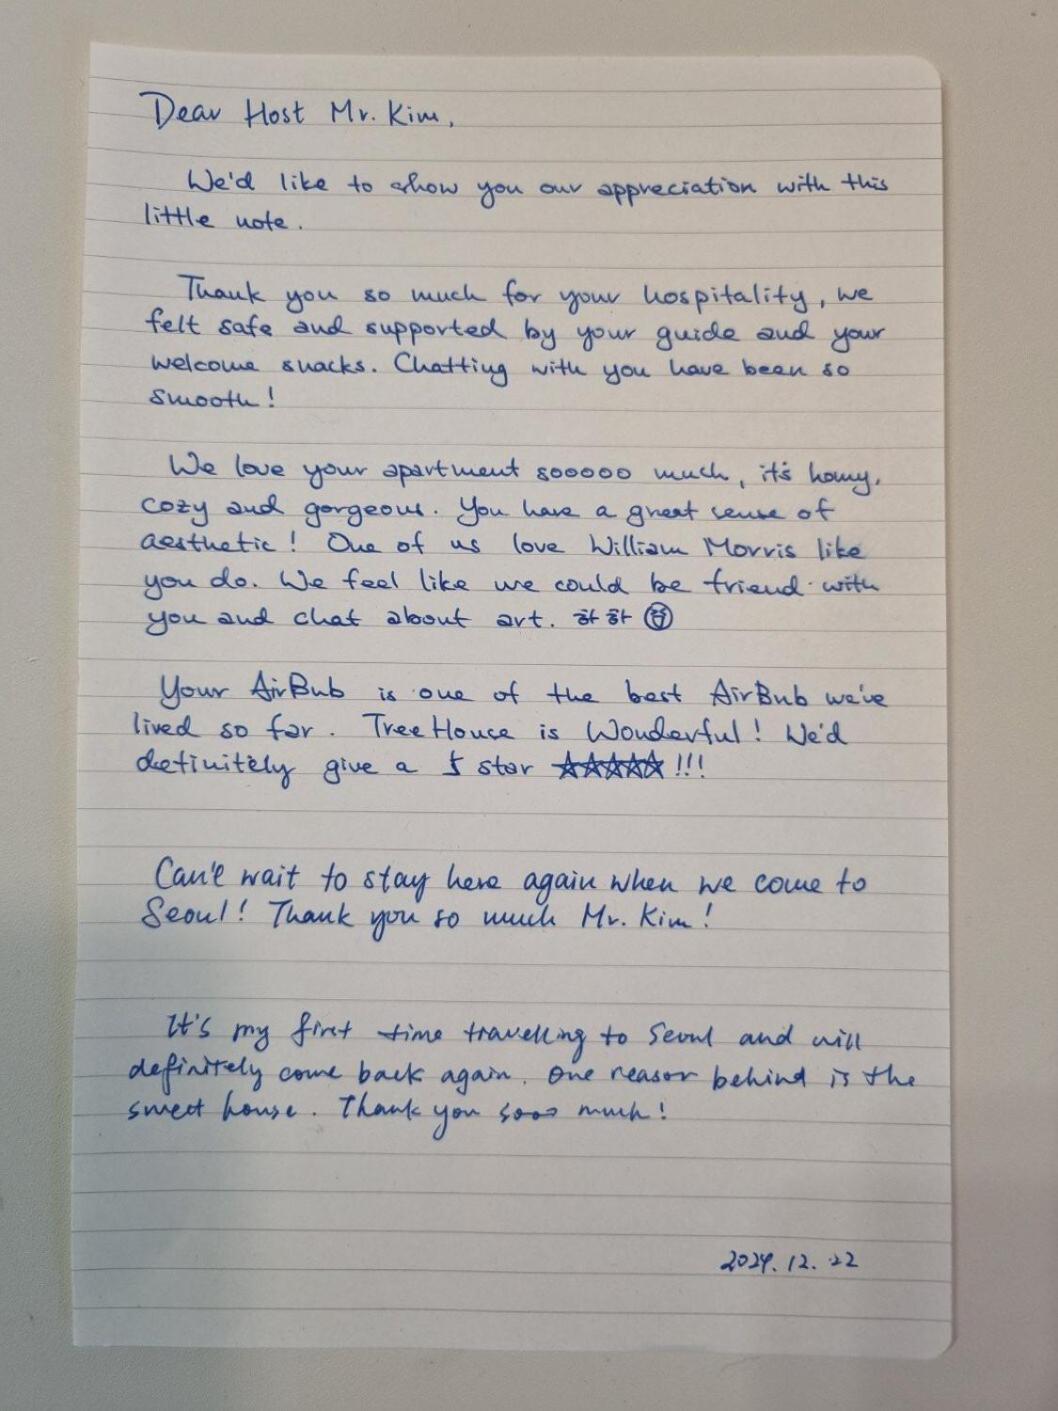 Dear Host Mr. Kim,
We'd like to show you our appreciation with this
little note.
Thank you so much for your hospitality, we
felt safe and supported by your guide and your
welcome snacks. Chatting with you have been so
smooth!
We love your apartment sooooo much, it's homy,
cozy and gorgeous. You have a great sense of
aesthetic! One of us love William Morris like
you do. We feel like we could be friend with
you and chat about art. 하하
Your AirBnb is one of the best AirBnb we've
lived so far. TreeHouse is Wonderful! We'd
definitely give a 5 star ☆☆☆☆☆!!!
Can't wait to stay here again when we come to
Seoul! Thank you so much Mr. Kim!
It's my first time travelling to Seoul and will
definitely come back again. One reason behind is the
sweet house. Thank you sooo much!
2024.12.22